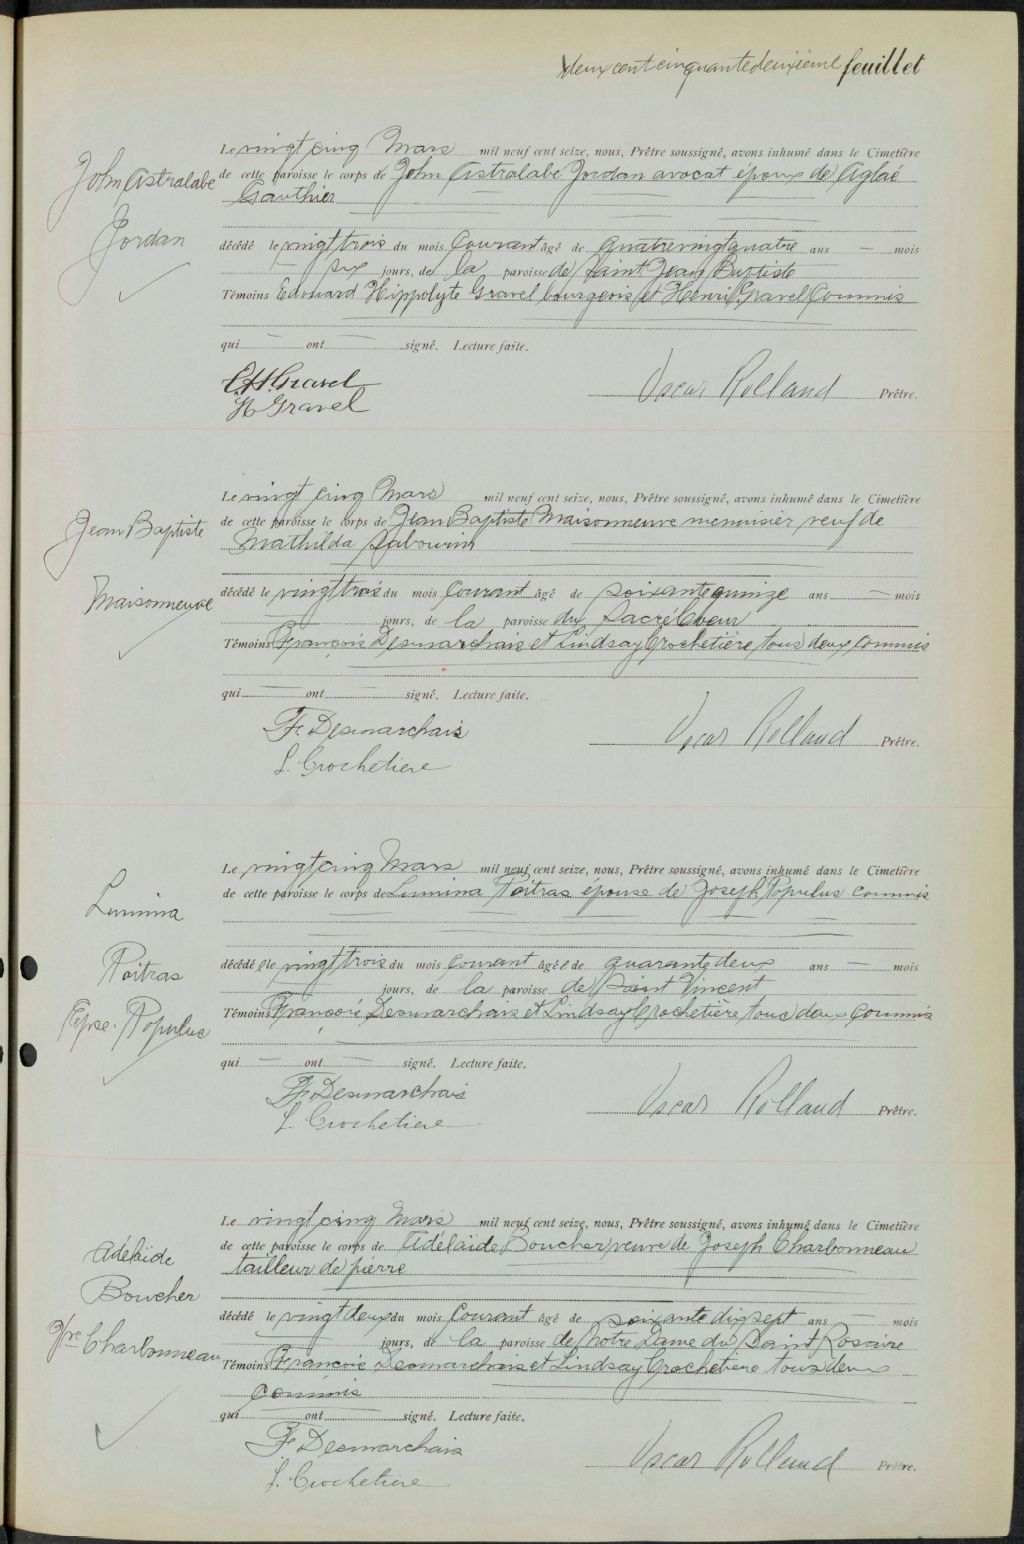 deux cent cinquante deuxième feuillet
John Astralabe
Jordan
Le vingt cinq Mars mil neuf cent seize, nous, Prêtre soussigné, avons inhumé dans le Cimetière
de cette paroisse le corps de John Astralabe Jordan avocat époux de Aglaé
Gauthier
décédé le vingt trois du mois Courant âgé de quatre vingt quatre ans — mois
six jours, de la paroisse de Saint Jean Baptiste
Témoins Edouard Hippolyte Gravel bourgeois et Henri Gravel Commis
qui — ont — signé. Lecture faite.
E.H. Gravel
H Gravel
Oscar Rolland Prêtre.
Jean Baptiste
Maisonneuve
Le vingt cinq Mars mil neuf cent seize, nous, Prêtre soussigné, avons inhumé dans le Cimetière
de cette paroisse le corps de Jean Baptiste Maisonneuve menuisier veuf de
Mathilda Sabourin
décédé le vingt trois du mois Courant âgé de soixante quinze ans — mois
jours, de la paroisse du Sacré Coeur
Témoins François Desmarchais et Lindsay Crochetière, tous deux commis
qui — ont — signé. Lecture faite.
F. Desmarchais
L. Crochetiere
Oscar Rolland Prêtre.
Lumina
Poitras
Epse. Populus
Le vingt cinq Mars mil neuf cent seize, nous, Prêtre soussigné, avons inhumé dans le Cimetière
de cette paroisse le corps de Lumina Poitras épouse de Joseph Populus commis
décédée le vingt trois du mois courant âgée de quarante deux ans — mois
jours, de la paroisse de Saint Vincent
Témoins François Desmarchais et Lindsay Crochetière, tous deux commis
qui — ont — signé. Lecture faite.
F. Desmarchais
L. Crochetiere
Oscar Rolland Prêtre.
Adélaïde
Boucher
Vve Charbonneau
Le vingt cinq Mars mil neuf cent seize, nous, Prêtre soussigné, avons inhumé dans le Cimetière
de cette paroisse le corps de Adélaïde Boucher veuve de Joseph Charbonneau
tailleur de pierre
décédé le vingt deux du mois Courant âgé de soixante dix sept ans — mois
jours, de la paroisse de Notre Dame du Saint Rosaire
Témoins François Desmarchais et Lindsay Crochetiere tous deux
commis
qui ont signé. Lecture faite.
F. Desmarchais
L. Crochetiere
Oscar Rolland Prêtre.